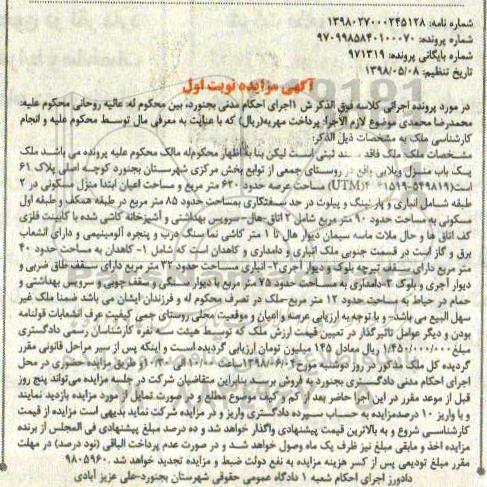 شماره نامه: ۱۳۹۸۰۲۷۰۰۰۲۴۵۱۲۸
شماره پرونده: ۹۷۰۹۹۸۵۸۴۰۱۰۰۰۷۰
شماره بایگانی پرونده: ۹۷۱۳۱۹
تاریخ تنظیم: ۱۳۹۸/۰۵/۰۸
آگهی مزایده نوبت اول
در مورد پرونده اجرائی کلاسه فوق الذکر ش ۱اجرای احکام مدنی بجنورد، بین محکوم له: عالیه روحانی محکوم علیه:
محمدرضا محمدی موضوع لازم الاجراء پرداخت مهریه(ریال) که با عنایت به معرفی مال توسط محکوم علیه و انجام
کارشناسی ملک به مشخصات ذیل الذکر:
مشخصات ملک ملک فاقد سند ثبتی است لیکن بنا به اظهار محکوم‌له مالک محکوم علیه پرونده می باشد. ملک
یک باب منزل ویلایی واقع در روستای جمعی از توابع بخش مرکزی شهرستان بجنورد کوچه اصلی پلاک ۶۱
است(۵۴۹۸۱۹-۱۵۱۹ UTM) مساحت عرصه حدود ۶۲۰ متر مربع و مساحت اعیان ابتدا منزل مسکونی در ۲
طبقه شامل انباری و پارکینگ و پیلوت در حد سفتکاری بمساحت حدود ۸۵ متر مربع در طبقه همکف و طبقه اول
سکونی به مساحت حدود ۹۰ متر مربع شامل ۲ اتاق-هال- سرویس بهداشتی و آشپزخانه کاشی شده با کابینت فلزی
کف اتاق ها و حال ملات ماسه سیمان دیوار هال تا ۱ متر کاشی نما سنگ درب و پنجره آلومینیمی و دارای انشعاب
برق و گاز است در قسمت جنوبی ملک انباری و دامداری و کاهدان است که شامل ۱- کاهدان به مساحت حدود ۴۰
متر مربع دارای سقف تیرچه بلوک و دیوار آجری ۲- انباری مساحت حدود ۳۲ متر مربع دارای سقف طاق ضربی و
دیوار آجری و بلوک ۳-دامداری به مساحت حدود ۷۵ متر مربع با دیوار سنگی و سقف چوبی و سرویس بهداشتی و
حمام در حیاط به مساحت حدود ۱۲ متر مربع-ملک در تصرف محکوم له و فرزندان ایشان می باشد ضمنا ملک غیر
سهل البیع می باشد- و با توجه به ارزیابی عرصه و اعیان و موقعیت محلی روستای جمی کیفیت عرف انشعابات قولنامه
بودن و دیگر عوامل تاثیرگذار در تعیین قیمت ارزش ملک که توسط هیئت سه نفره کارشناسان رسمی دادگستری
مبلغ ۱/۴۵۰/۰۰۰/۰۰۰ ریال معادل ۱۴۵ میلیون تومان ارزیابی گردیده است و اینکه پس از سیر مراحل قانونی مقرر
گردیده کل ملک مذکور در روز دوشنبه مورخ از طریق مزایده حضوری در محل
اجرای احکام مدنی دادگستری بجنورد به فروش برسد بنابراین متقاضیان شرکت در جلسه مزایده می‌تواند پنج روز
قبل از موعد مقرر در این اجرا حاضر بعد از کم و کیف موضوع مطلع و در صورت تمایل از مورد مزایده بازدید نمایند
و با واریز ۱۰ درصدمزایده به حساب سپرده دادگستری واریز و در مزایده شرکت نماید بدیهی است مزایده از قیمت
کارشناسی شروع و به بالاترین قیمت پیشنهادی واگذار خواهد شد و ده درصد مبلغ پیشنهادی فی المجلس از برنده
مزایده اخذ و مابقی مبلغ نیز ظرف یک ماه وصول خواهد شد و در صورت عدم پرداخت الباقی (نود درصد) در مهلت
مقرر مبلغ تودیعی پس از کسر هزینه مزایده به نفع دولت ضبط و مزایده تجدید خواهد شد. ۹۸۰۵۹۶۰
دادورز اجرای احکام شعبه ۱ دادگاه عمومی حقوقی شهرستان بجنورد-علی عزیز آبادی